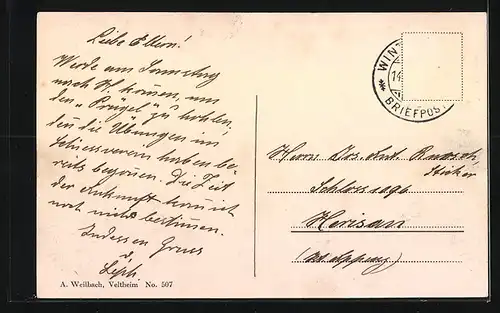 Liebe Eltern!
Werde am Sonntag
nach H. kommen, um
den "Prügel" zu holen,
den die Übungen im
Schiessverein haben be-
reits begonnen. Die Zeit
der Ankunft kann ich
noch nicht bestimmen.
Indessen Gruss
A. Weilbach, Veltheim No. 507
WINT
14
BRIEFPOS
Herrn Jos. Ant.
Sticker
Schloss 1096
Herisau
(Kt. Appenz)